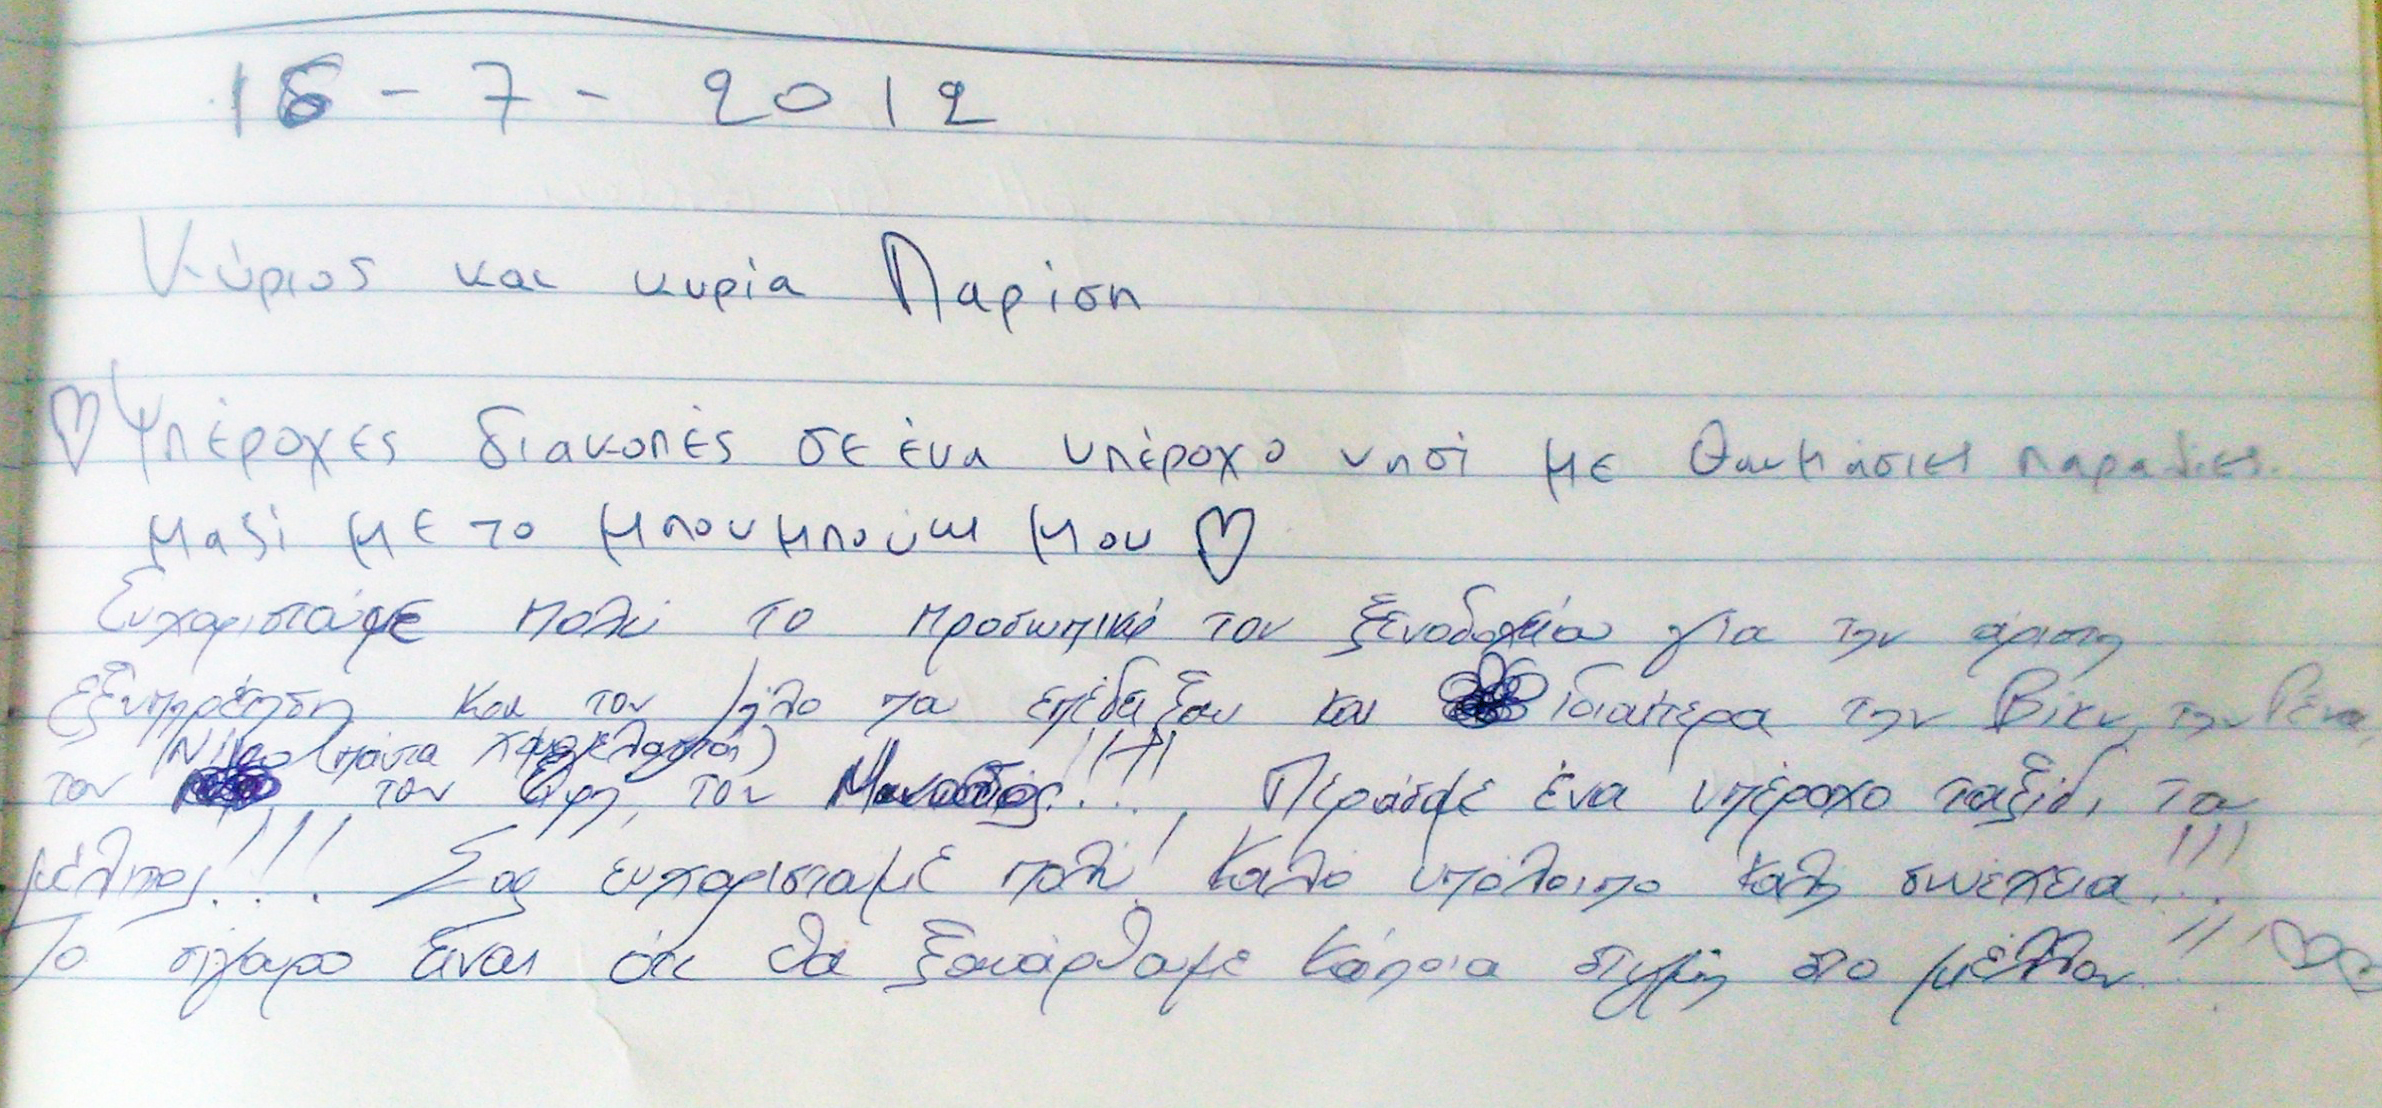 16-7-2012
Κύριος και κυρία Παρίση
♡ Υπέροχες διακοπές σε ένα υπέροχο νησί με θαυμάσιες παραλίες.
μαζί με το μπουμπούκι μου ♡
Ευχαριστούμε πολύ το προσωπικό του ξενοδοχείου για την άριστη
εξυπηρέτηση και τον ζήλο που επέδειξαν και ιδιαίτερα την Βίκυ, την Ρένα,
τον Νίκο (πάντα χαμογελαστοί) τον Άρη, τον !!! Περάσαμε ένα υπέροχο ταξίδι του
μέλιτος!!! Σας ευχαριστούμε πολύ! Καλό υπόλοιπο καλή συνέχεια!!!
Το σίγουρο είναι ότι θα ξανάρθουμε κάποια στιγμή στο μέλλον!!! ♡♡